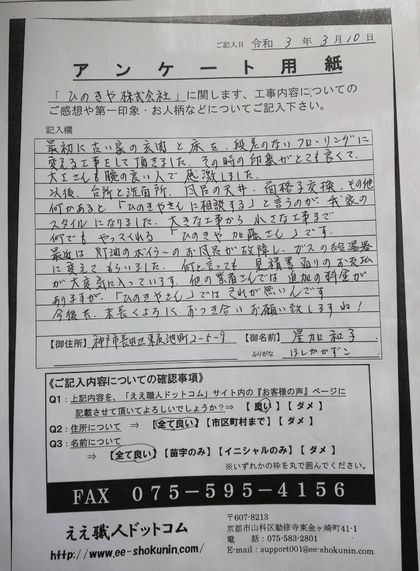 ご記入日 令和 3 年 3 月 10 日
アンケート用紙
「 ひのきや株式会社 」に関します、工事内容についての
ご感想や第一印象・お人柄などについてご記入下さい。
記入欄
最初に古い家の玄関と床を、段差のないフローリングに
変える工事をして頂きました。その時の印象がとても良くて、
大工さんも腕の良い人で感激しました。
以後、台所と洗面所、風呂の天井・面格子交換、その他
何かあると「ひのきやさんに相談する」と言うのが、我家の
スタイルになりました。大きな工事から小さな工事まで
何でもやってくれる「ひのきや 加藤さん」です。
最近は灯油のボイラーのお風呂が故障し、ガスの給湯器
に変えてもらいました。何と言っても、見積書通りのお支払
が大変気に入っています。他の業者さんでは追加の料金が
ありますが、「ひのきやさん」ではそれが無いんです
今後共、末長くよろしくおつき合いお願い致しますね!
【御住所】神戸市長田区東尻池町2-5-9 【御名前】星加 和子
ふりがな ほしかかずこ
《ご記入内容についての確認事項》
Q1：上記内容を、「ええ職人ドットコム」サイト内の『お客様の声』ページに
記載させて頂いてよろしいでしょうか?⇒ 【 良い 】 【 ダメ 】
Q2：住所について ⇒ 【全て良い】【市区町村まで】【 ダメ 】
Q3：名前について
⇒ 【全て良い】【苗字のみ】【イニシャルのみ】【 ダメ 】
※いずれかの枠を丸で囲んでください。
FAX 075-595-4156
ええ職人ドットコム
http://www.ee-shokunin.com/
〒607-8213
京都市山科区勧修寺東金ヶ崎町41-1
電話：075-583-2801
E-mail：support001@ee-shokunin.com